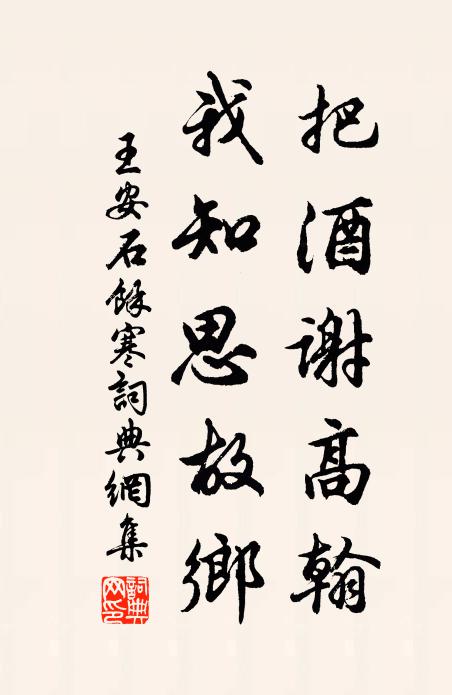 把酒謝高翰
我知思故鄉
王安石餘寒詞典網集
詞典網印